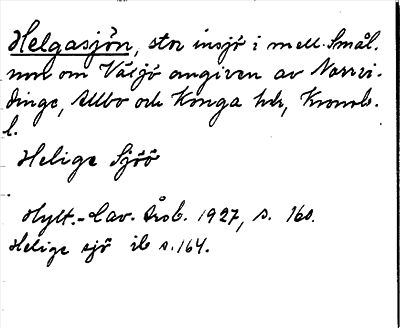 Helgasjön, stor insjö i mell. Smål.
nno om Växjö omgiven av Norrvi-
dinge, Allbo och Konga hdr, Kronob.
l.
Helige Sjöö
Hylt.-Cav. Årsb. 1927, s. 160.
Helige sjö ib s. 164.